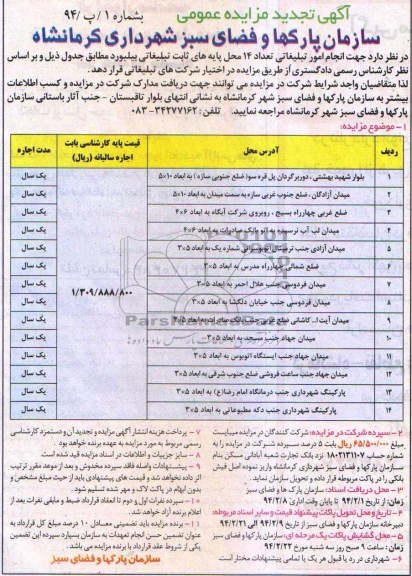 آگهی تجدید مزایده عمومی
بشماره ۱/پ/۹۴
سازمان پارکها و فضای سبز شهرداری کرمانشاه
در نظر دارد جهت انجام امور تبلیغاتی تعداد ۱۴ محل پایه های ثابت تبلیغاتی بیلبورد مطابق جدول ذیل و بر اساس
نظر کارشناس رسمی دادگستری از طریق مزایده در اختیار شرکت های تبلیغاتی قرار دهد.
لذا متقاضیان واجد شرایط شرکت در مزایده می توانند جهت دریافت مدارک شرکت در مزایده و کسب اطلاعات
بیشتر به سازمان پارکها و فضای سبز شهر کرمانشاه به نشانی انتهای بلوار تاقبستان - جنب آثار باستانی سازمان
پارکها و فضای سبز شهر کرمانشاه مراجعه نمایید. تلفن: ۳۴۲۷۷۱۶۲-۰۸۳
۱- موضوع مزایده:
ردیف آدرس محل قیمت پایه کارشناسی بابت اجاره سالیانه (ریال) مدت اجاره
۱ بلوار شهید بهشتی، دوربرگردان پل قره سو( ضلع جنوبی سازه) به ابعاد ۱۰×۵ یک سال
۲ میدان آزادگان، ضلع جنوب غربی سازه به سمت میدان به ابعاد ۱۰×۵ یک سال
۳ ضلع غربی چهارراه بسیج، روبروی شرکت آبگاه به ابعاد ۶×۴ یک سال
۴ میدان لب آب نرسیده به اتو بانک صادرات به ابعاد ۶×۴ یک سال
۵ میدان آزادی جنب ترمینال اتوبوسرانی شماره یک به ابعاد ۵×۳ یک سال
۶ ضلع شمالی چهارراه مدرس به ابعاد ۵×۳ یک سال
۷ میدان فردوسی جنب هلال احمر به ابعاد ۵×۳ ۱/۳۰۹/۸۸۸/۸۰۰ یک سال
۸ میدان فردوسی جنب خیابان دلگشا به ابعاد ۵×۳ یک سال
۹ میدان آیت ا... کاشانی ضلع غربی جنب بانک صادرات به ابعاد یک سال
۱۰ میدان جهاد جنب مسجد به ابعاد ۵×۳ یک سال
۱۱ میدان جهاد جنب ایستگاه اتوبوس به ابعاد ۵×۳ یک سال
۱۲ میدان جهاد جنب ساعت فروشی ضلع جنوب شرقی به ابعاد ۵×۳ یک سال
۱۳ پارکینگ شهرداری جنب درمانگاه امام رضا(ع) به ابعاد ۵×۳ یک سال
۱۴ پارکینگ شهرداری جنب دکه مطبوعاتی به ابعاد ۵×۳ یک سال
۲- سپرده شرکت در مزایده: شرکت کنندگان در مزایده میبایست
مبلغ ۶۵/۵۰۰/۰۰۰ ریال بابت ۵ درصد سپرده شرکت در مزایده را به
شماره حساب ۱۸۰۲۱۳۱۱۰۷ نزد بانک تجارت شعبه آبادانی مسکن بنام
سازمان پارکها و فضای سبز شهرداری کرمانشاه واریز نموده اصل فیش
بانکی را در پاکت مربوطه قرار داده و تحویل سازمان نماید.
۳- محل دریافت اسناد: سازمان پارک ها و فضای سبز
زمان: از تاریخ ۹۴/۲/۱ تا پایان وقت اداری ۹۴/۲/۸
۴- تاریخ و محل تحویل پاکات پیشنهاد قیمت و سایر اسناد مربوطه:
دبیرخانه سازمان پارکها و فضای سبز از تاریخ ۹۴/۲/۹ الی ۹۴/۲/۲۱
۵- محل گشایش پاکات یک مرحله ای: سازمان پارکها و فضای سبز
زمان: ساعت ۹ صبح روز سه شنبه مورخ ۹۴/۲/۲۲
۶- شهرداری در رد یا قبول هر یک یا تمامی پیشنهادات مختار است.
۷- پرداخت هزینه انتشار آگهی مزایده و تجدید آن و دستمزد کارشناسی
رسمی مربوط به مورد مزایده به عهده برنده خواهد بود.
۸- سایر جزییات و اطلاعات در اسناد مزایده قید شده است
۹- پیشنهادات واصله فاقد سپرده مخدوش و بعد از موعد مقرر ترتیب
اثر داده نخواهد شد و قیمت های پیشنهادی باید از حیث مبلغ مشخص و
بدون ابهام در پاکت لاک و مهر شده تسلیم شود.
۱۰- سپرده نفرات اول و دوم تا انعقاد قرارداد ضبط و مابقی نفرات بعد از
اعلام برنده آزاد خواهد شد.
۱۱- برنده مزایده باید تضمینی معادل ۱۰ درصد مبلغ کل قرارداد به
عنوان تضمین حسن انجام تعهدات به سازمان بسپارد این تضمین
یکی از شروط عقد قرارداد با برنده مزایده می باشد.
سازمان پارکها و فضای سبز
ParsNamadData